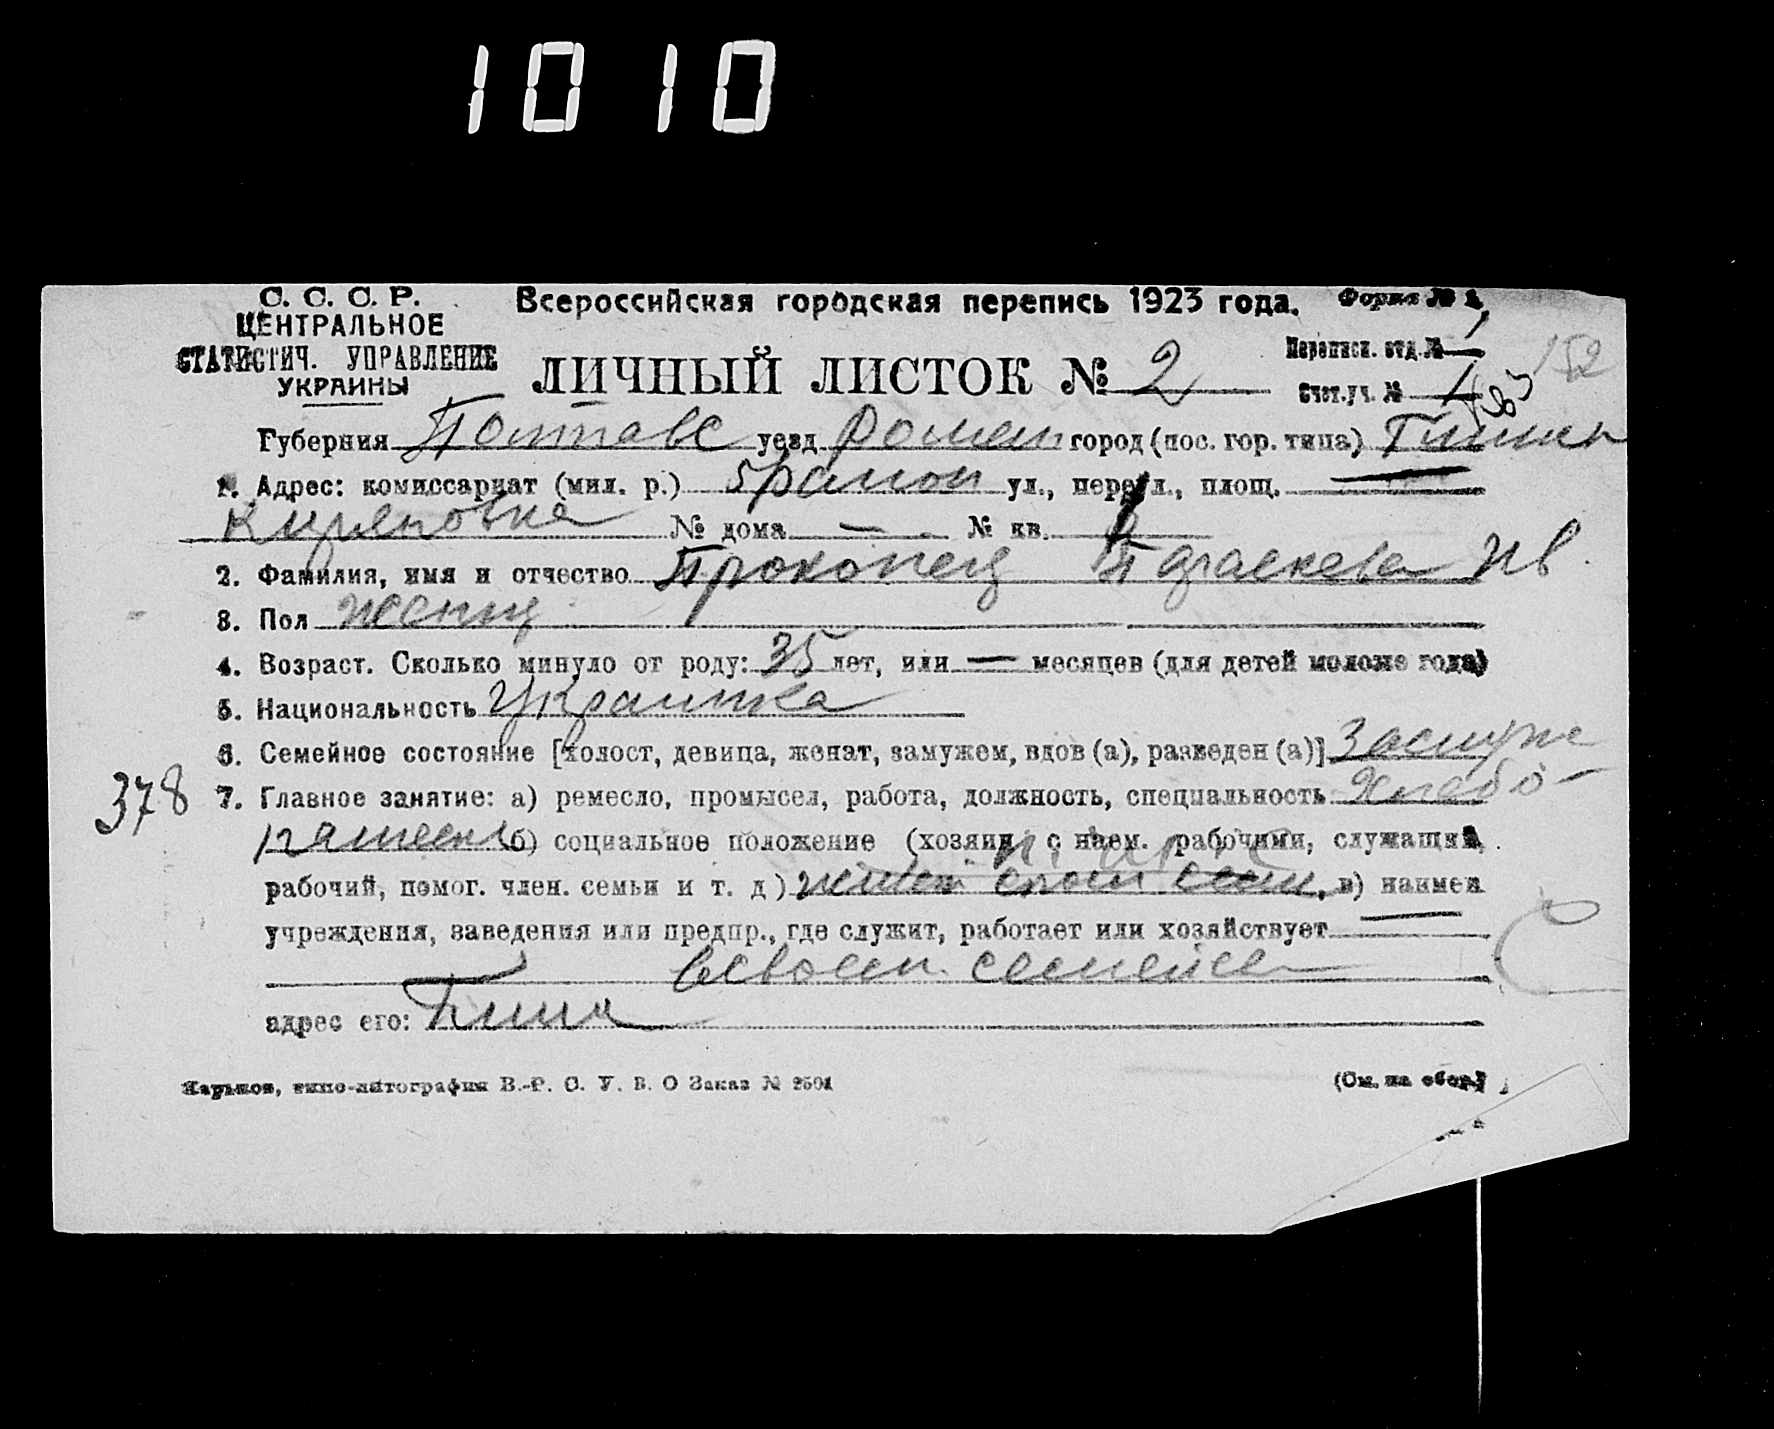 1010
С. С. С. Р. Всероссийская городская перепись 1923 года. Форма № 1
ЦЕНТРАЛЬНОЕ
СТАТИСТИЧ. УПРАВЛЕНИЕ
УКРАИНЫ
ЛИЧНЫЙ ЛИСТОК № 2
Переписн. отд. № 1
Счет. уч. № 1
152
Губерния Полтавс уезд Ромен город (пос. гор. типа)
1. Адрес: комиссариат (мил. р.) 5 район ул., переул., площ. —
Куряновка № дома — № кв.
2. Фамилия, имя и отчество Прокопец Параскева Ив.
3. Пол женщ
4. Возраст. Сколько минуло от роду: 35 лет, или — месяцев (для детей моложе года)
5. Национальность Украинка
6. Семейное состояние [холост, девица, женат, замужем, вдов (а), разведен (а)] Замуже
378
7. Главное занятие: а) ремесло, промысел, работа, должность, специальность Хлебо-
пашест б) социальное положение (хозяин с наем. рабочими, служащий,
рабочий, помог. член. семьи и т. д) в) наимен
учреждения, заведения или предпр., где служит, работает или хозяйствует —
в своем семействе
адрес его:
Харьков, типо-литография В.-Р. С. У. В. О Заказ № 2501
(См. на обор.)